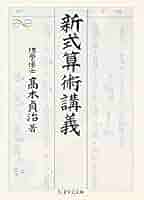 新式算術講義
理學博士
高木貞治
著
ちくま学芸文庫